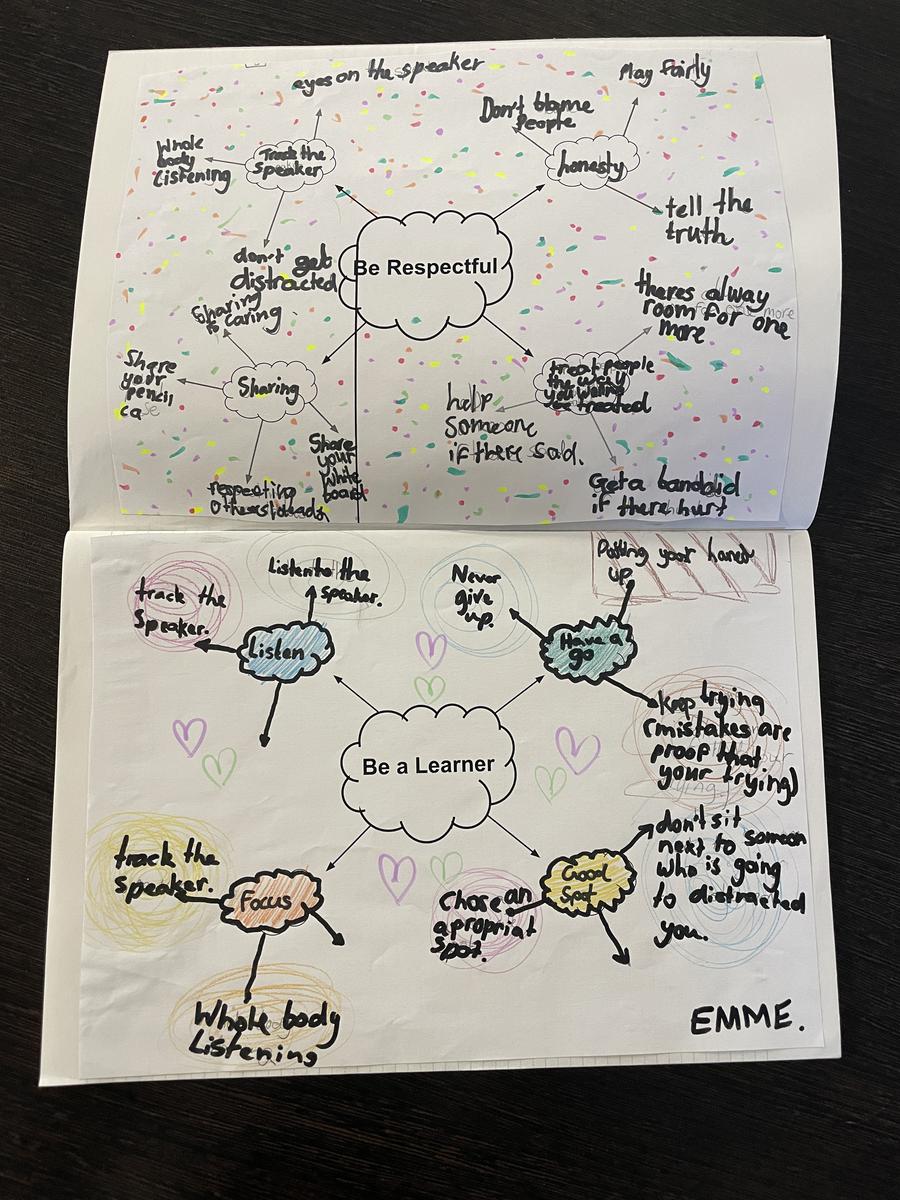 eyes on the speaker
Whole
body
Listening
Track the
Speaker
don't get
distracted
Don't blame
People
Play fairly
honesty
tell the
truth
Be Respectful
Sharing
is caring
Share
your
pencil
case
Sharing
respecting
Share
your
White
board
theres alway
room for one
more
treat people
the way
you
be treated
help
Someone
if there sad.
Get a bandaid
if there hurt
track the
Speaker.
Listen to the
speaker.
Listen
Never
give
up.
Putting your hand
up
Have a
go
keep trying
(mistakes are
proof that
your trying)
Be a Learner
track the
speaker.
Focus
Whole body
Listening
Good
Spot
Chose an
apropriat
spot.
don't sit
next to someon
who is going
to distracted
you.
EMME.